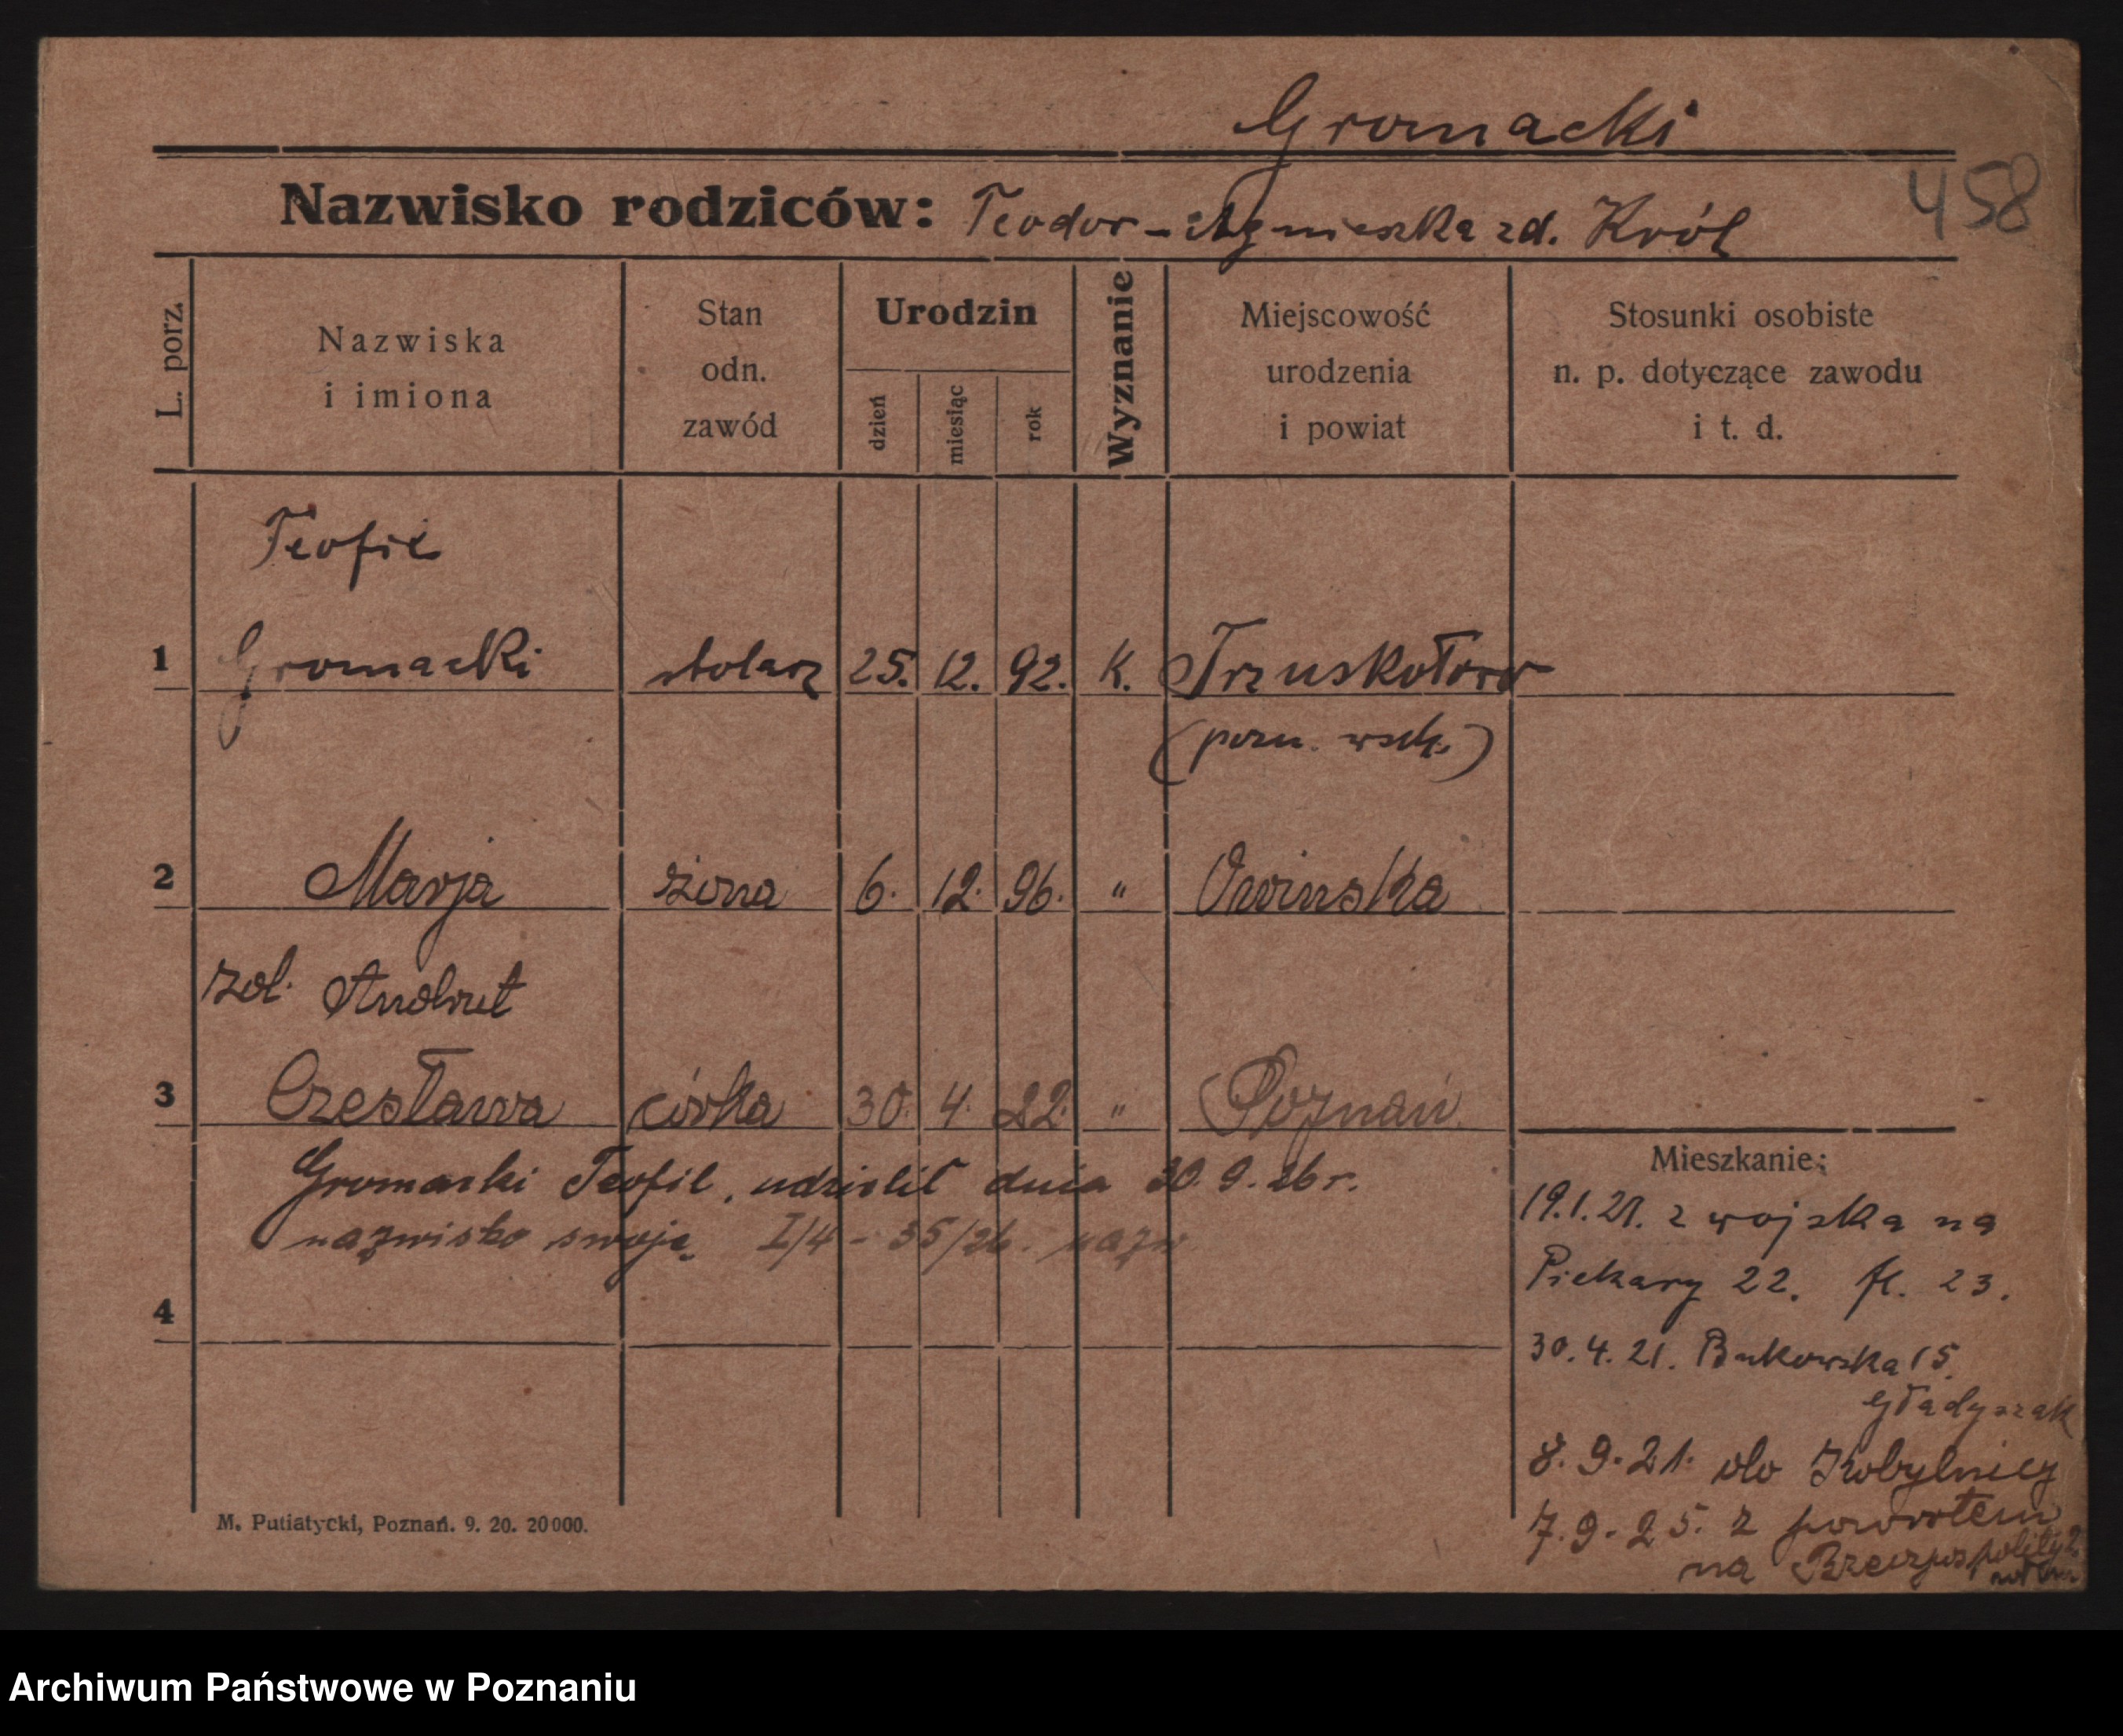 Gromacki
Nazwisko rodziców: Teodor - Agnieszka zd. Król
458
L. porz.
Nazwiska
i imiona
Stan
odn.
zawód
Urodzin
dzień
miesiąc
rok
Wyznanie
Miejscowość
urodzenia
i powiat
Stosunki osobiste
n. p. dotyczące zawodu
i t. d.
Teofil
1 Gromacki stolarz 25. 12. 92. K. Trzuskołow
(pozn. wsch.)
2 Marja żona 6. 12. 96. " Owinska
zd. Andrut
3 Czesława córka 30. 4. 22. " Poznań
Gromacki Teofil, udzielił dnia 30.9.26 r.
nazwisko swoje I/4 - 35/26. nazw
4
Mieszkanie:
19.1.21. z wojska na
Piekary 22. fl. 23.
30.4.21. Bukowska 15.
Gładyszak
8.9.21. do Kobylnicy
7.9.25. z powrotem
na
M. Putiatycki, Poznań. 9. 20. 20000.
Archiwum Państwowe w Poznaniu